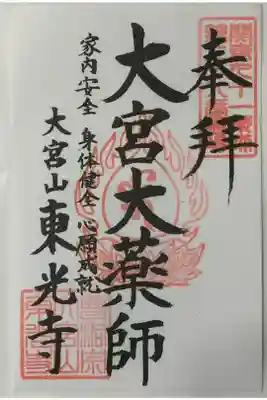 奉拝
大宮大薬師
家内安全 身体健全 心願成就
大宮山 東光寺